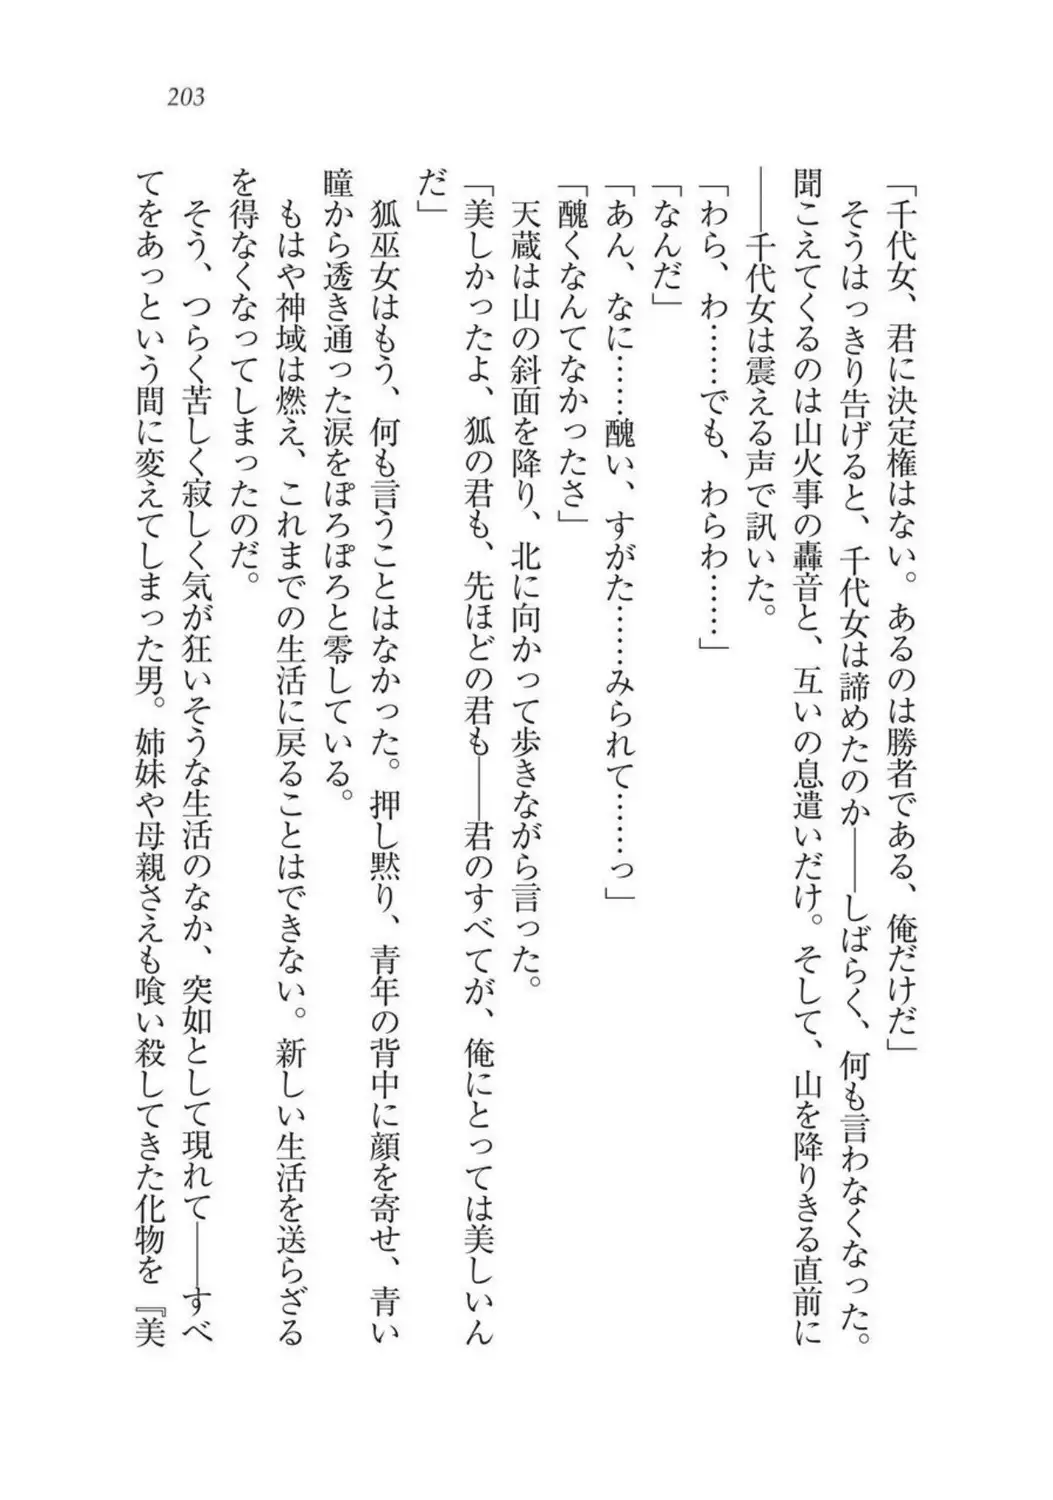 203
「千代女、君に決定権はない。あるのは勝者である、俺だけだ」
そうはっきり告げると、千代女は諦めたのか――しばらく、何も言わなくなった。
聞こえてくるのは山火事の轟音と、互いの息遣いだけ。そして、山を降りきる直前に
――千代女は震える声で訊いた。
「わら、わ……でも、わらわ……」
「なんだ」
「あん、なに……醜い、すがた……みられて……っ」
「醜くなんてなかったさ」
天蔵は山の斜面を降り、北に向かって歩きながら言った。
「美しかったよ、狐の君も、先ほどの君も――君のすべてが、俺にとっては美しいん
だ」
狐巫女はもう、何も言うことはなかった。押し黙り、青年の背中に顔を寄せ、青い
瞳から透き通った涙をぽろぽろと零している。
もはや神域は燃え、これまでの生活に戻ることはできない。新しい生活を送らざる
を得なくなってしまったのだ。
そう、つらく苦しく寂しく気が狂いそうな生活のなか、突如として現れて――すべ
てをあっという間に変えてしまった男。姉妹や母親さえも喰い殺してきた化物を『美